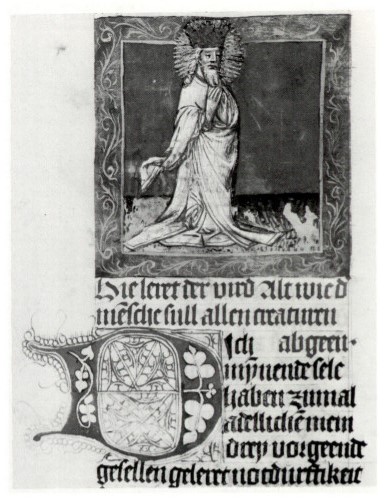 Hie leret der vird Alt wie d
mēsche sull allen creaturen
Dich abgeen·
mynnende sele
haben zumal
adellichē mein
drey vorgeende
gesellen geleret notdurftikeit